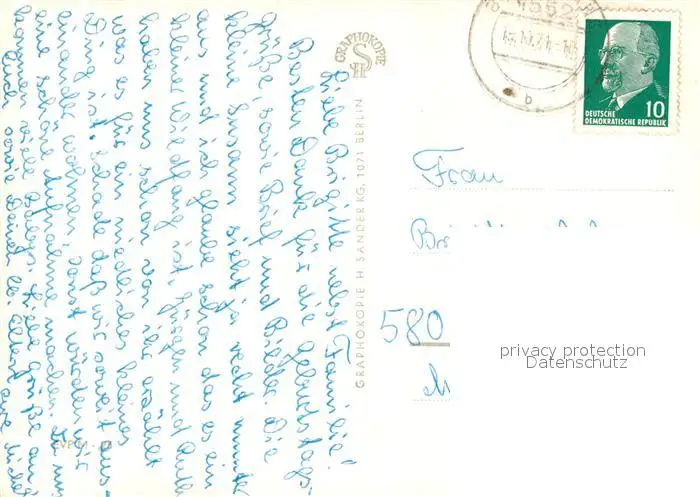 Liebe Brigitte nebst Familie!
Besten Dank für die Geburtstags-
grüße, sowie Brief und Bilder. Die
kleine Susann sieht ja recht munter
aus und ich glaube schon das es ein
kleiner Wildfang ist. Jürgen und
haben uns schon von ihr erzählt
was es für ein niedliches kleines
Ding ist. Schade daß wir so weit aus-
einander wohnen, sonst würden wir
eine schöne Aufnahme machen.
kommen viele Babys. Viele Grüße an
Euch sowie Deine lb. Eltern
GRAPHOKOPIE
H S
GRAPHOKOPIE H. SANDER KG, 1071 BERLIN
1552
b
10
DEUTSCHE
DEMOKRATISCHE REPUBLIK
Frau
Br
580
privacy protection
Datenschutz